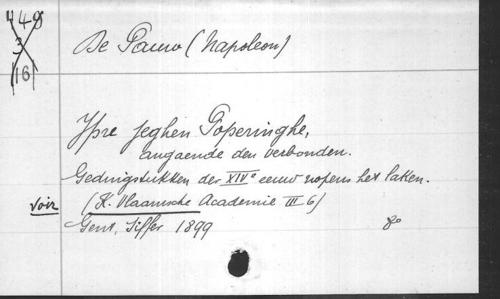 448
3
16
De Pauw (Napoleon)
Ypre jeghen Poperinghe,
angaende den verbonden.
Gedingstukken der XIVe eeuw nopens het laken.
voir (K. Vlaamsche Academie III 6)
Gent, Siffer 1899 8o